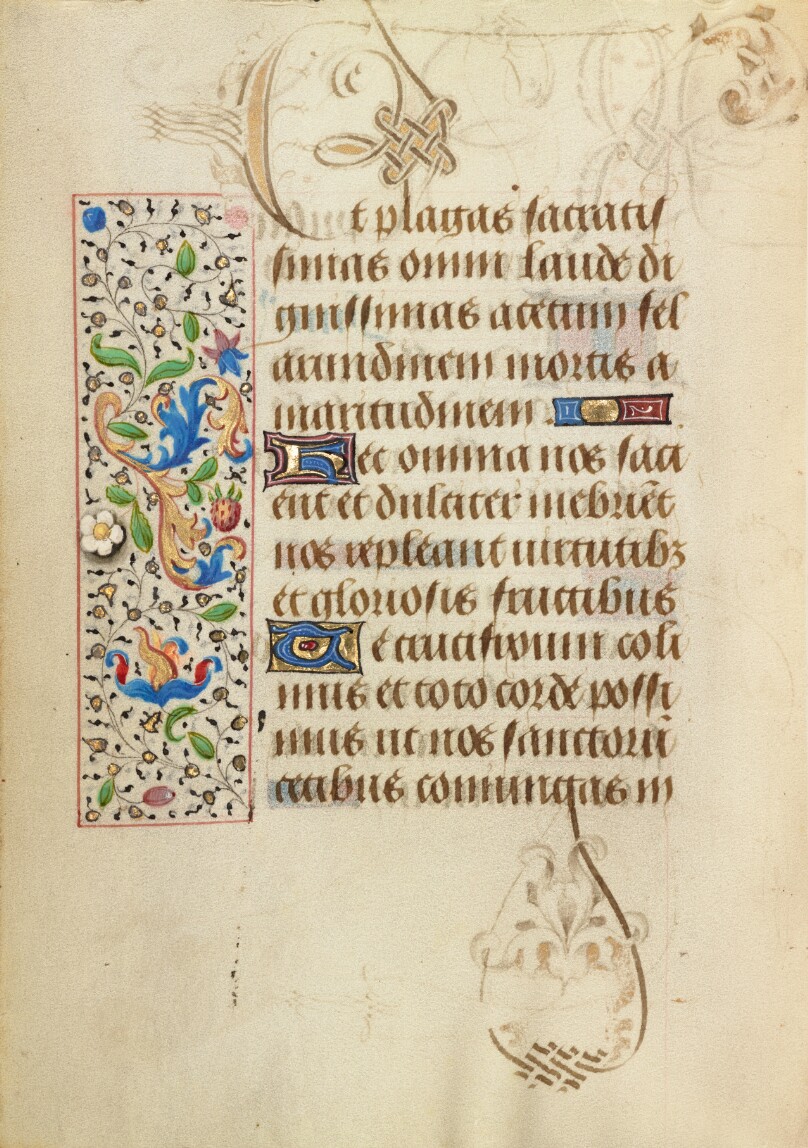 Et plagas sacratis
simas omni laude di
gnissimas acetum fel
arundinem mortis a
maritudinem
Hec omnia nos saci
ent et dulciter inebriēt
nos repleant uirtutibꝫ
et gloriosis fructibus
Te crucifixum coli
mus et toto corde possi
mus ut nos sanctorū
cetibus coniungas in